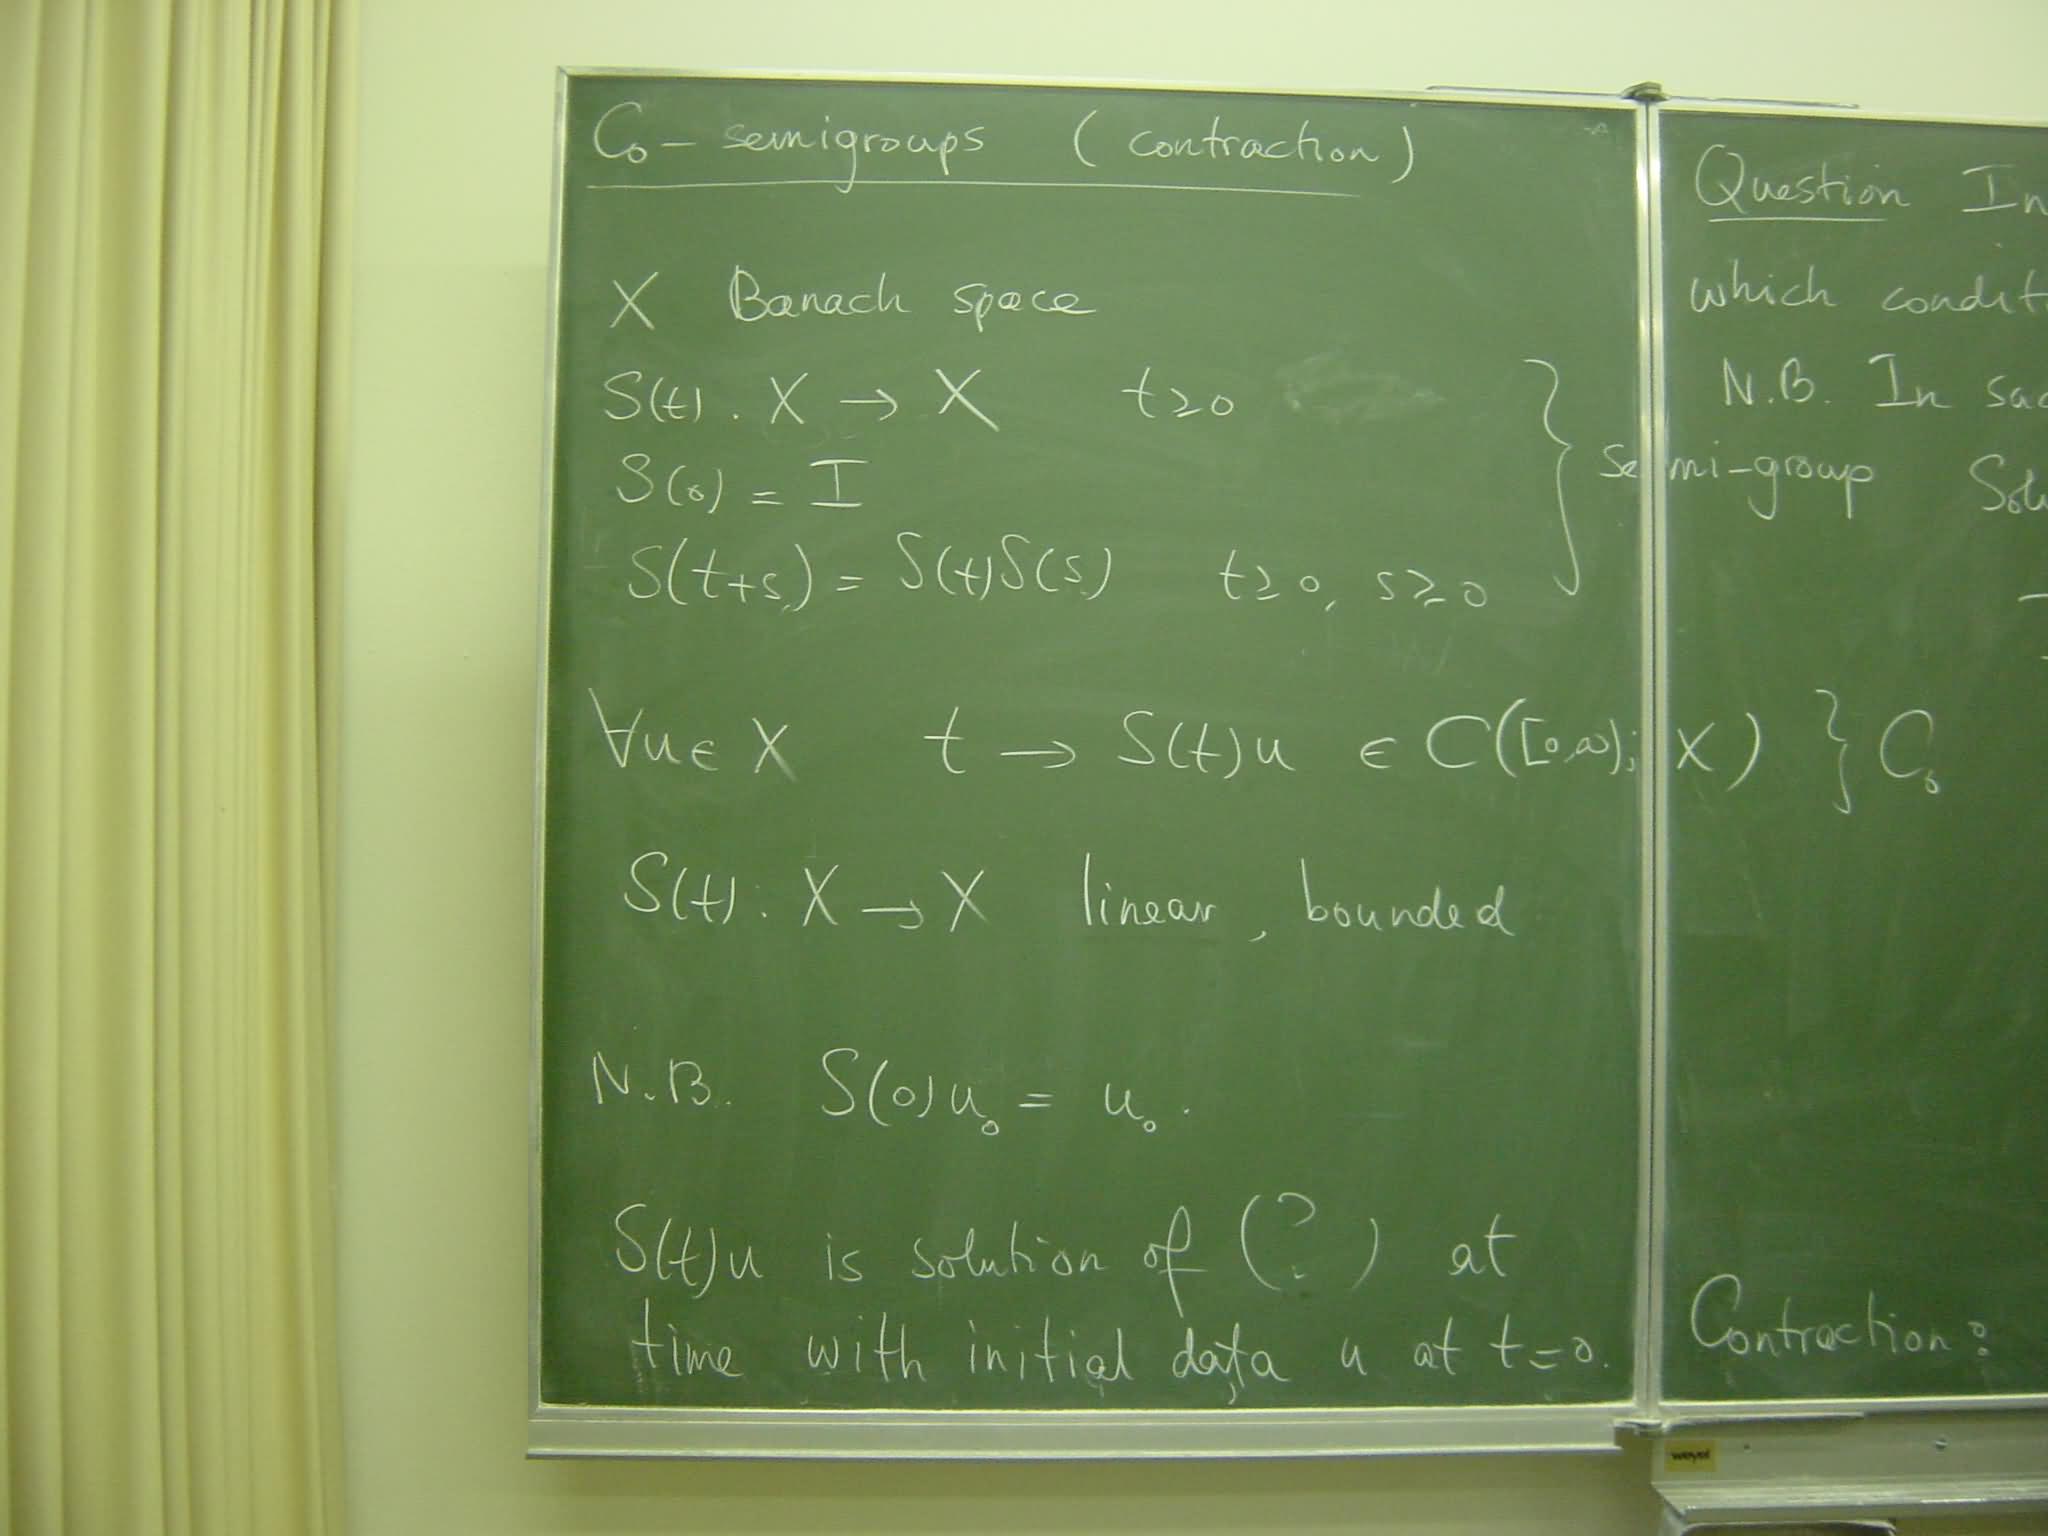 C₀ - semigroups (contraction)
X Banach space
S(t) . X → X t ≥ 0
S(0) = I
S(t+s) = S(t)S(s) t ≥ 0, s ≥ 0
} semi-group
∀u ∈ X t → S(t)u ∈ C([0,∞); X) } C₀
S(t) : X → X linear, bounded
N.B. S(0)u₀ = u₀.
S(t)u is solution of (?) at
time with initial data u at t=0.
Question In
which condit
N.B. In suc
Solu
Contraction:
weyel